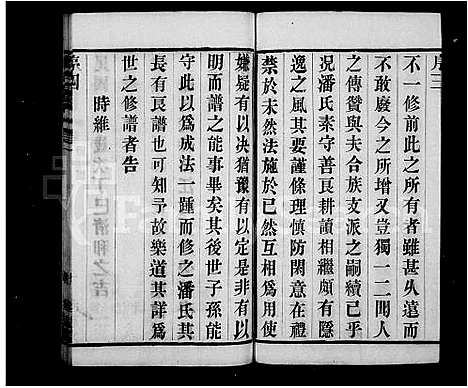 序三
不一修前此之所有者雖甚久遠而
不敢廢今之所增又豈獨一二聞人
之傳贊與夫合族支派之嗣續已乎
況潘氏素守善良耕讀相繼頗有隱
逸之風其要謹條理慎防閑意在禮
禁於未然法施於已然互相爲用使
嫌疑有以決猶豫有以定是非有以
明而譜之能事畢矣其後世子孫能
守此以爲成法一踵而修之潘氏其
長有良譜也可知其予故樂道其詳爲
世之修譜者告
時維
序四